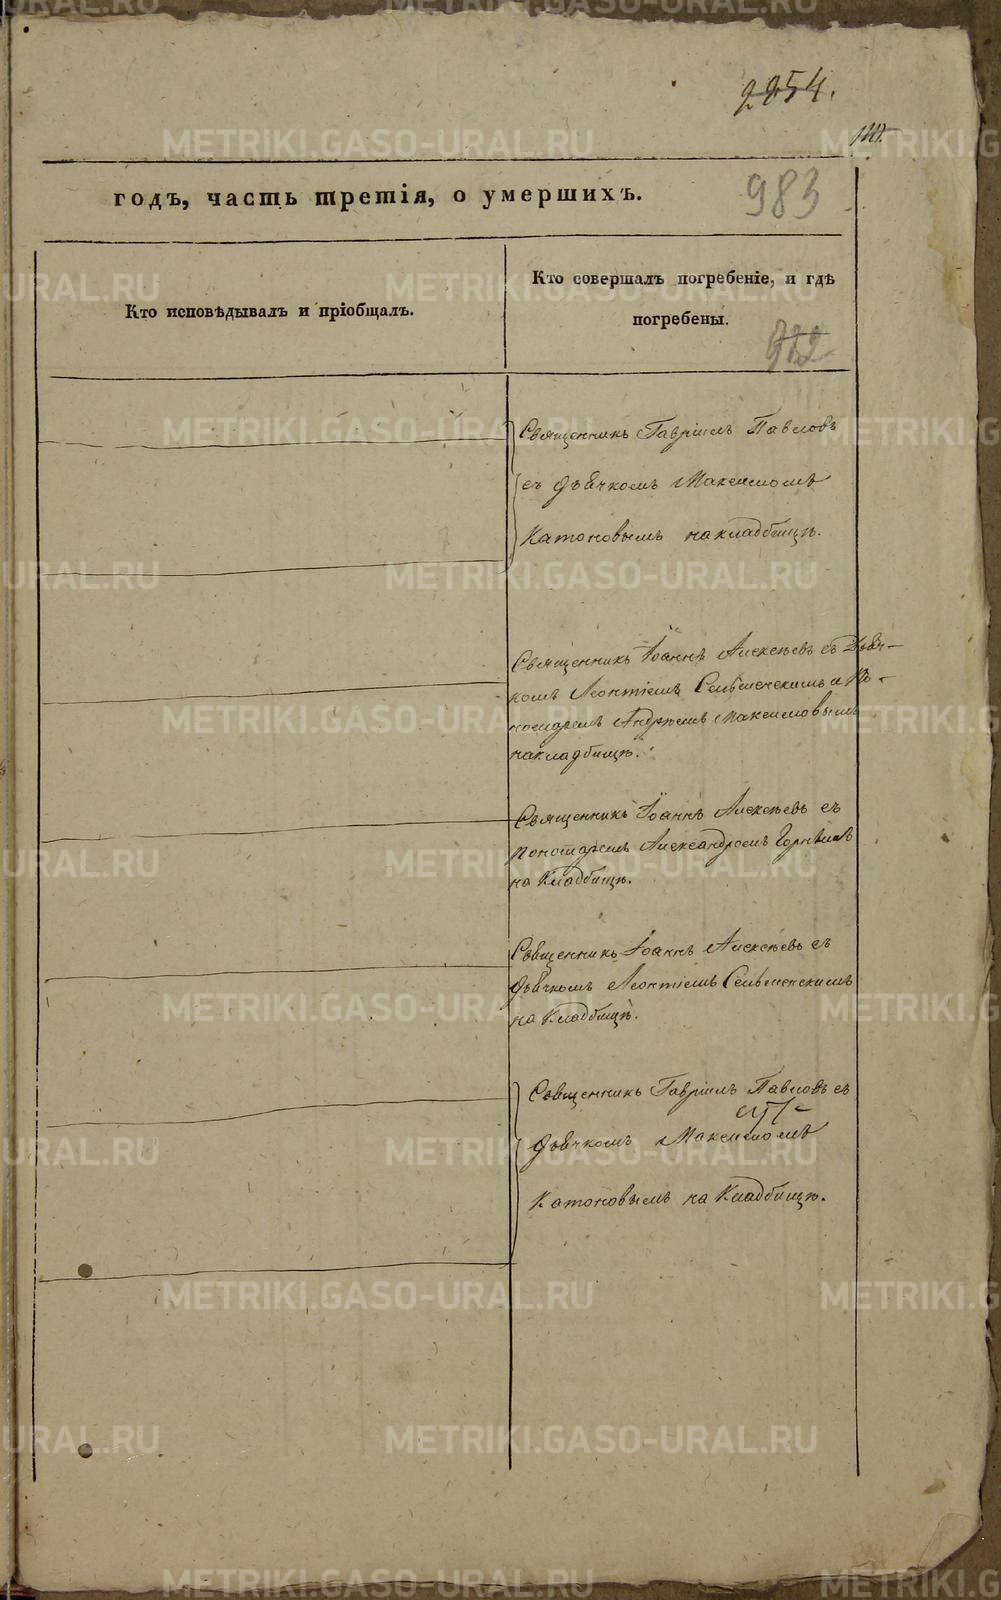 2854.
годъ, часть третія, о умершихъ.
983
Кто исповѣдывалъ и пріобщалъ.
Кто совершалъ погребеніе, и гдѣ
погребены.
922
Священникъ Гавріилъ Павловъ
съ дьячкомъ Максимомъ
Катоновымъ на кладбищѣ.
Священникъ Іоаннъ Алексѣевъ съ Дьяч-
комъ Леонтіемъ Сельменскимъ и По-
номаремъ Андреемъ Максимовымъ
на кладбищѣ.
Священникъ Іоаннъ Алексѣевъ съ
пономаремъ Александромъ
на Кладбищѣ.
Священникъ Іоаннъ Алексѣевъ съ
дьячкомъ Леонтіемъ Сельменскимъ
на Кладбищѣ.
Священникъ Гавріилъ Павловъ съ
дьячкомъ Максимомъ
Катоновымъ на Кладбищѣ.
METRIKI.GASO-URAL.RU